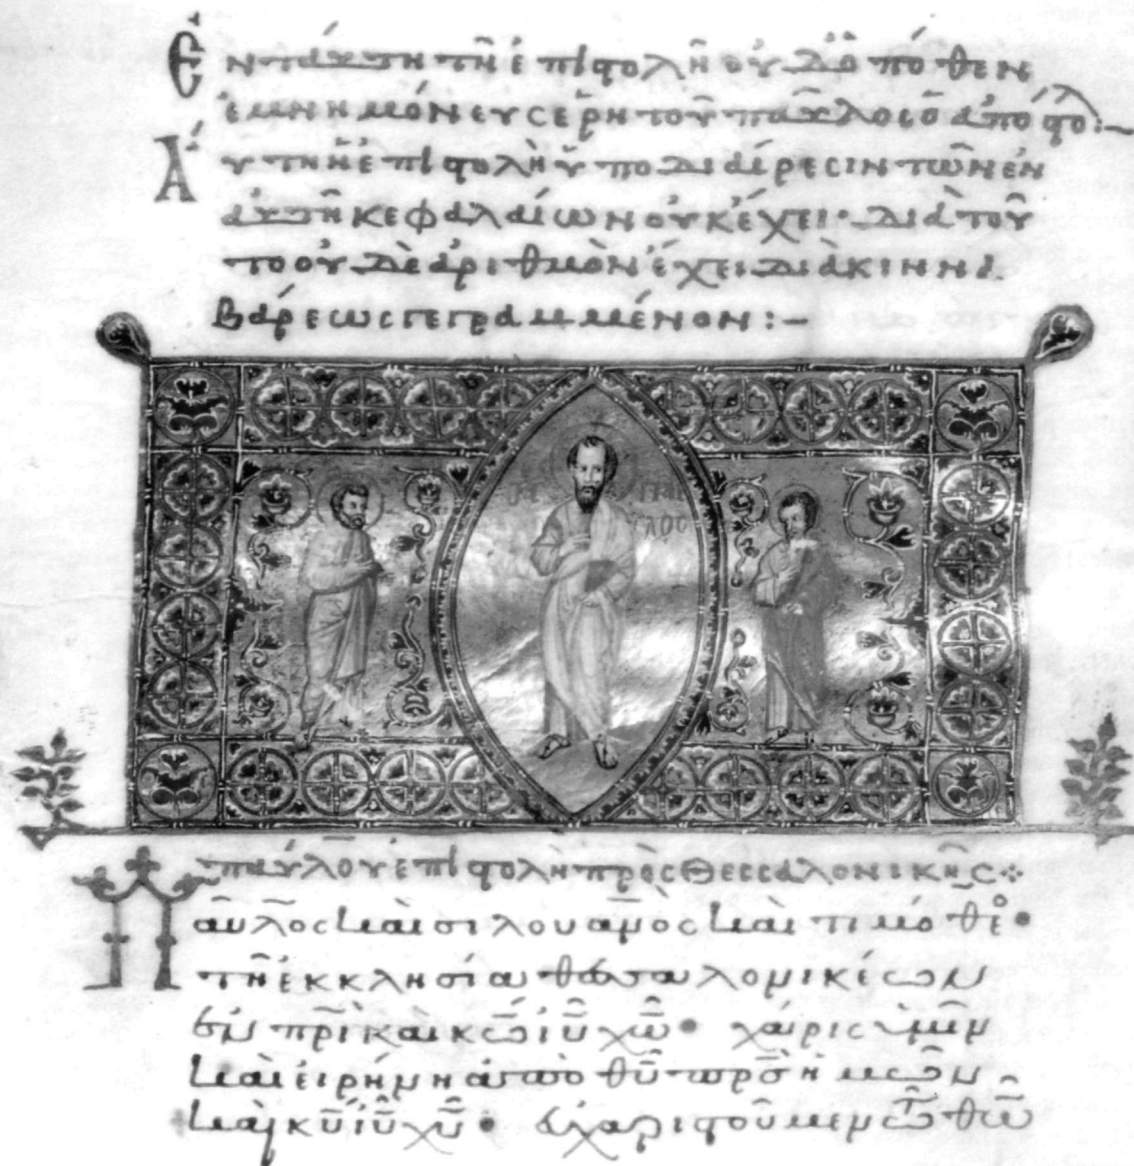 Ἐν ταύτη τῆ ἐπιστολῆ οὐδ πόθεν
ἐμνημόνευσε ῥητοῦ παῦλος ὁ ἀπόστολ:–
Αὐτη ἡ ἐπιστολὴ ὑποδιαίρεσιν τῶν ἐν
αὐτῆ κεφαλαίων οὐκ ἔχει· διὰ τοῦ
το οὐδὲ ἀριθμὸν ἔχει διὰ κιννα
βάρεως γεγραμμένον:–
ὁ ἅγιος παῦλος
παύλου ἐπιστολὴ πρὸς Θεσσαλονικῆς
Παῦλος καὶ σιλουανὸς καὶ τιμόθε·
τῆ ἐκκλησία θεσσαλονικέων
ἐν πρὶ καὶ κῶ ἰῦ χῶ· χάρις ὑμῖν
καὶ εἰρήνη ἀπὸ θῦ πρς ἡμῶν
καὶ κῦ ἰῦ χῦ· εὐχαριστοῦμεν τῶ θῶ